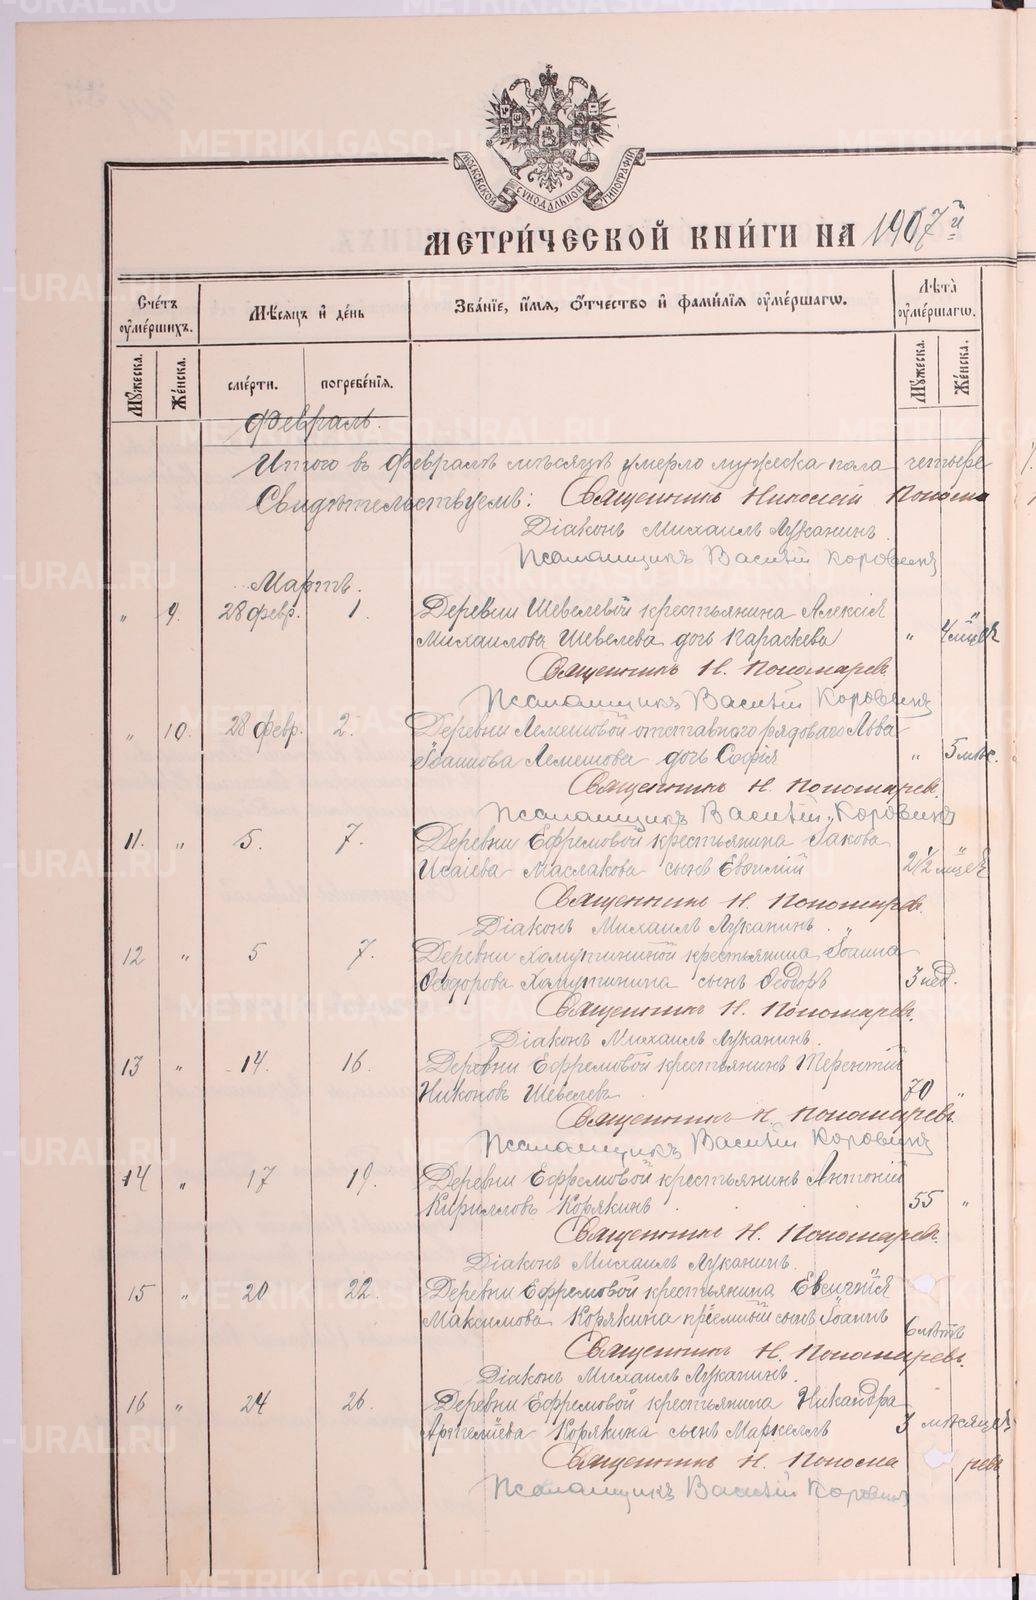 METRIKI.GASO-URAL.RU
МОСКОВСКОЙ СѴНОДАЛЬНОЙ ТИПОГРАФІИ
МЕТРИ́ЧЕСКОЙ КНИ́ГИ НА 1907й
Сче́тъ ᲂу҆ме́ршихъ.
Мѣ́сяцъ и҆ де́нь
Зва́нїе, и҆́мя, ѻ҆́тчество и҆ фами́лїя ᲂу҆ме́ршагѡ.
Лѣ́та ᲂу҆ме́ршагѡ.
Мꙋ́жеска.
Же́нска.
сме́рти.
погребе́нїя.
Мꙋ́жеска.
Же́нска.
Февраль.
Итого въ Февралѣ мѣсяцѣ умерло мужеска пола четыре
Свидѣтельствуемъ: Священникъ Николай
Діаконъ Михаилъ Луканинъ
Псаломщикъ Василій Коровинъ
Мартъ.
" 9. 28 февр. 1. Деревни Шевелевой крестьянина Алексія
Михаилова Шевелева дочь Параскева "
Священникъ Н. Пономаревъ
Псаломщикъ Василій Коровинъ
" 10. 28 февр. 2. Деревни Лемешовой отставного рядоваго Льва
Іоаннова Лемешова дочь Софія " 5 мѣс.
Священникъ Н. Пономаревъ.
Псаломщикъ Василій Коровинъ
11. " 5. 7. Деревни Ефремовой крестьянина Іакова
Исаіева Маслакова сынъ Евѳимій 2½ мѣсяц
Священникъ Н. Пономаревъ
Діаконъ Михаилъ Луканинъ.
12 " 5 7. Деревни Хомутининой крестьянина Іоанна
Ѳеодорова Хомутинина сынъ Ѳеодоръ 3 нед.
Священникъ Н. Пономаревъ.
Діаконъ Михаилъ Луканинъ.
13 " 14. 16. Деревни Ефремовой крестьянинъ Терентій
Никоновъ Шевелевъ 70 "
Священникъ Н. Пономаревъ.
Псаломщикъ Василій Коровинъ
14 " 17 19. Деревни Ефремовой крестьянинъ Антоній
Кирилловъ Корякинъ 55 "
Священникъ Н. Пономаревъ.
Діаконъ Михаилъ Луканинъ.
15 " 20 22. Деревни Ефремовой крестьянина
Максимова Корякина пріемный сынъ Іоаннъ 6 лѣтъ
Священникъ Н. Пономаревъ.
Діаконъ Михаилъ Луканинъ.
16 " 24 26. Деревни Ефремовой крестьянина Никандра
Артеміева Корякина сынъ Маркеллъ 3 мѣсяцев
Священникъ Н. Понома ревъ
Псаломщикъ Василій Коровинъ